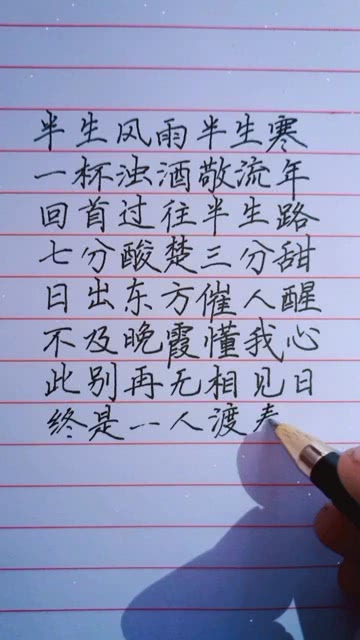 半生风雨半生寒
一杯浊酒敬流年
回首过往半生路
七分酸楚三分甜
日出东方催人醒
不及晚霞懂我心
此别再无相见日
终是一人渡